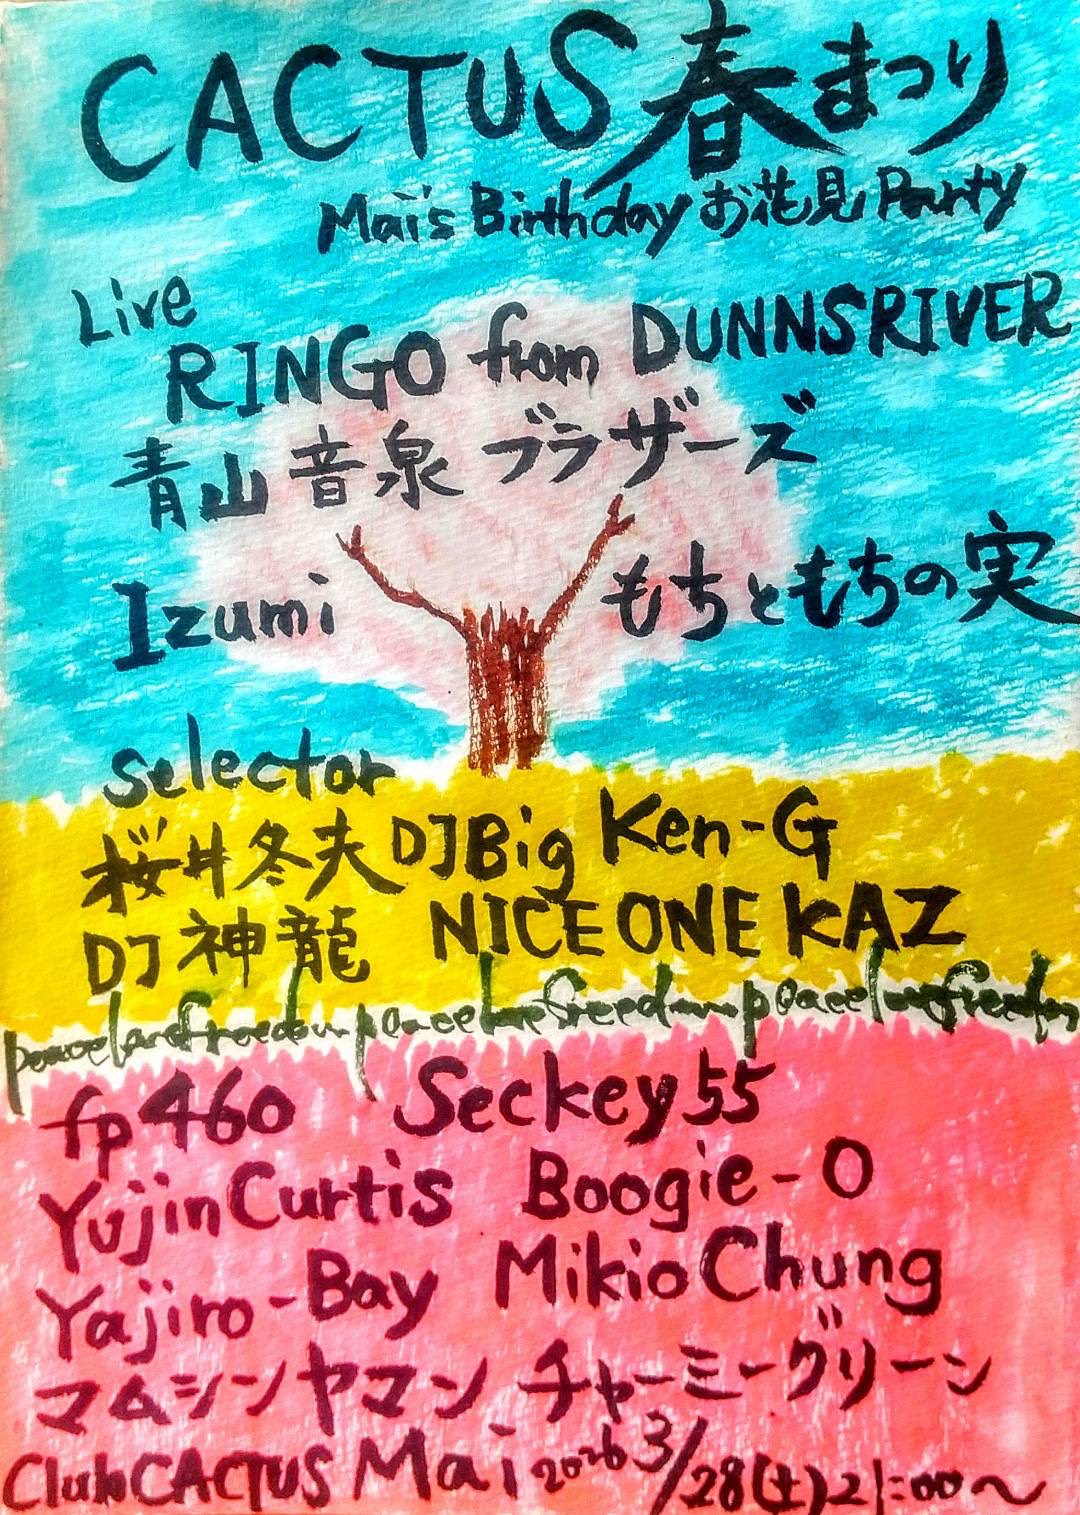 CACTUS 春まつり
Mai's Birthday お花見 Party
Live
RINGO from DUNNSRIVER
青山 音泉 ブラザーズ
Izumi もちともちの実
selector
桜井冬夫 DJ Big Ken-G
DJ 神龍 NICE ONE KAZ
peace love freedom peace love freedom peace love freedom
fp460 Seckey55
Yujin Curtis Boogie-O
Yajiro-Bay Mikio Chung
マムシンヤマン チャーミーグリーン
Club CACTUS Mai 2026 3/28(土)21:00〜